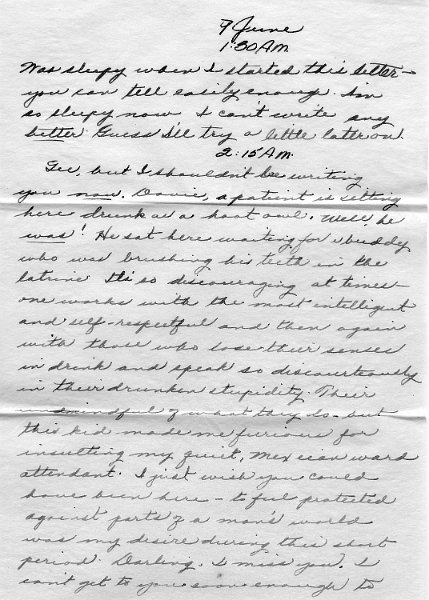 9 June
1:30 AM
Was sleepy when I started this letter-
you can tell easily enough. Am
so sleepy now I can't write any
better Guess I'll try a little later on.
2:15 AM.
Gee, but I shouldn't be writing
you now. Davie, a patient is sitting
here drunk as a hoot owl. Well, he
was! He sat here waiting for a buddy
who was brushing his teeth in the
latrine It's so discouraging at times-
one works with the most intelligent
and self-respectful and then again
with those who lose their senses
in drink and speak so discourteously
in their drunken stupidity. Their
unmindful of what they do - but
this kid made me furious for
insulting my quiet, Mexican ward
attendant. I just wish you could
have been here - to feel protected
against parts of a man's world
was my desire during this short
period. Darling, I miss you. I
can't get to you soon enough to